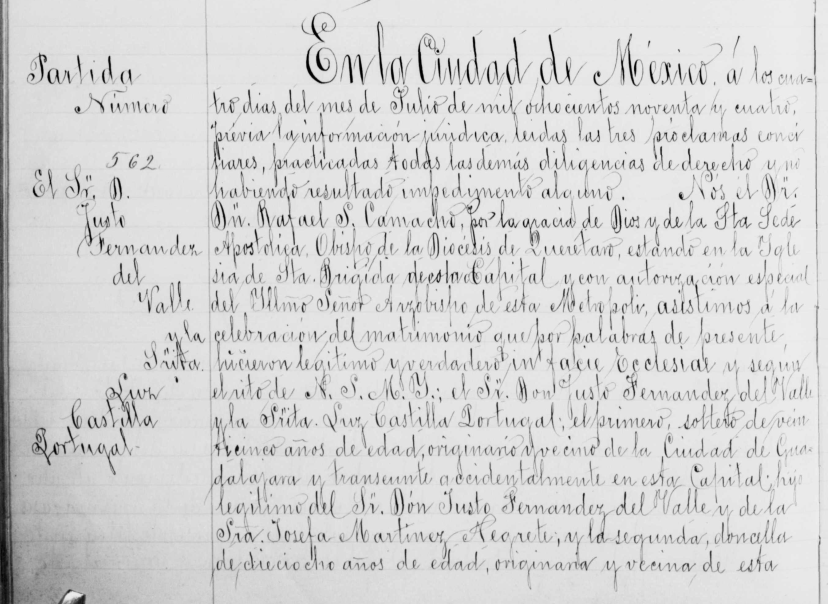 Partida
Número
562
El Sr. D.
Justo
Fernandez
del
Valle
y la
Srita.
Luz
Castilla
Portugal.
En la Ciudad de México, á los cua-
tro días del mes de Julio de mil ochocientos noventa y cuatro,
previa la información jurídica, leídas las tres proclamas conci
liares, practicadas todas las demás diligencias de derecho y no
habiendo resultado impedimento alguno. Nós el Dr.
Dn. Rafael S. Camacho, por la gracia de Dios y de la Sta Sede
Apostolica, Obispo de la Diócesis de Querétaro, estando en la Igle
sia de Sta. Brigida de esta Capital y con autorización especial
del Illmo Señor Arzobispo de esta Metropoli, asistimos á la
celebración del matrimonio que por palabras de presente,
hicieron legitimo y verdadero in facie Ecclesiae y según
el rito de N. S. M. Y.; el Sr. Don Justo Fernandez del Valle
y la Srita. Luz Castilla Portugal; el primero, soltero de vein
ticinco años de edad, originario y vecino de la Ciudad de Gua-
dalajara y transeunte accidentalmente en esta Capital; hijo
legitimo del Sr. Dón Justo Fernandez del Valle y de la
Sra. Josefa Martinez Negrete; y la segunda, doncella
de dieciocho años de edad, originaria y vecina de esta